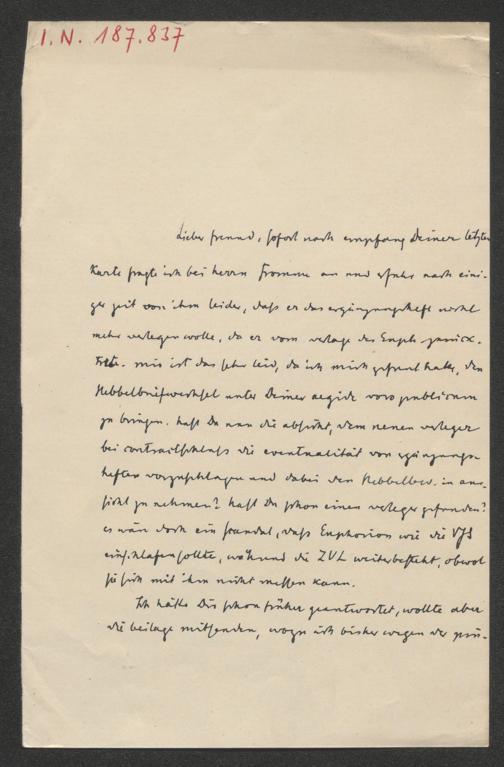 I. N. 187.837
Lieber freund, sofort nach empfang Deiner letzten
Karte fragte ich bei herrn Fromme an und erfuhr nach eini-
ger zeit von ihm leider, daß er das ergänzungsheft nicht
mehr verlegen wolle, da er vom verlage des Euph. zurück-
trete. mir ist das sehr leid, da ich mich gefreut hatte, den
Hebbelbriefwechsel unter Deiner aegide vors publicum
zu bringen. hast Du nun die absicht, dem neuen verleger
bei contractschluß die eventualität von ergänzungs-
heften vorzuschlagen und dabei den Hebbelbw. in aus-
sicht zu nehmen? hast Du schon einen verleger gefunden?
es wär doch ein scandal, daß Euphorion wie die VJS
einschlafen sollte, während die ZVL weiterbesteht, obwol
sie sich mit ihm nicht messen kann.
Ich hätte Dir schon früher geantwortet, wollte aber
die beilage mitsenden, wozu ich bisher wegen der prü-